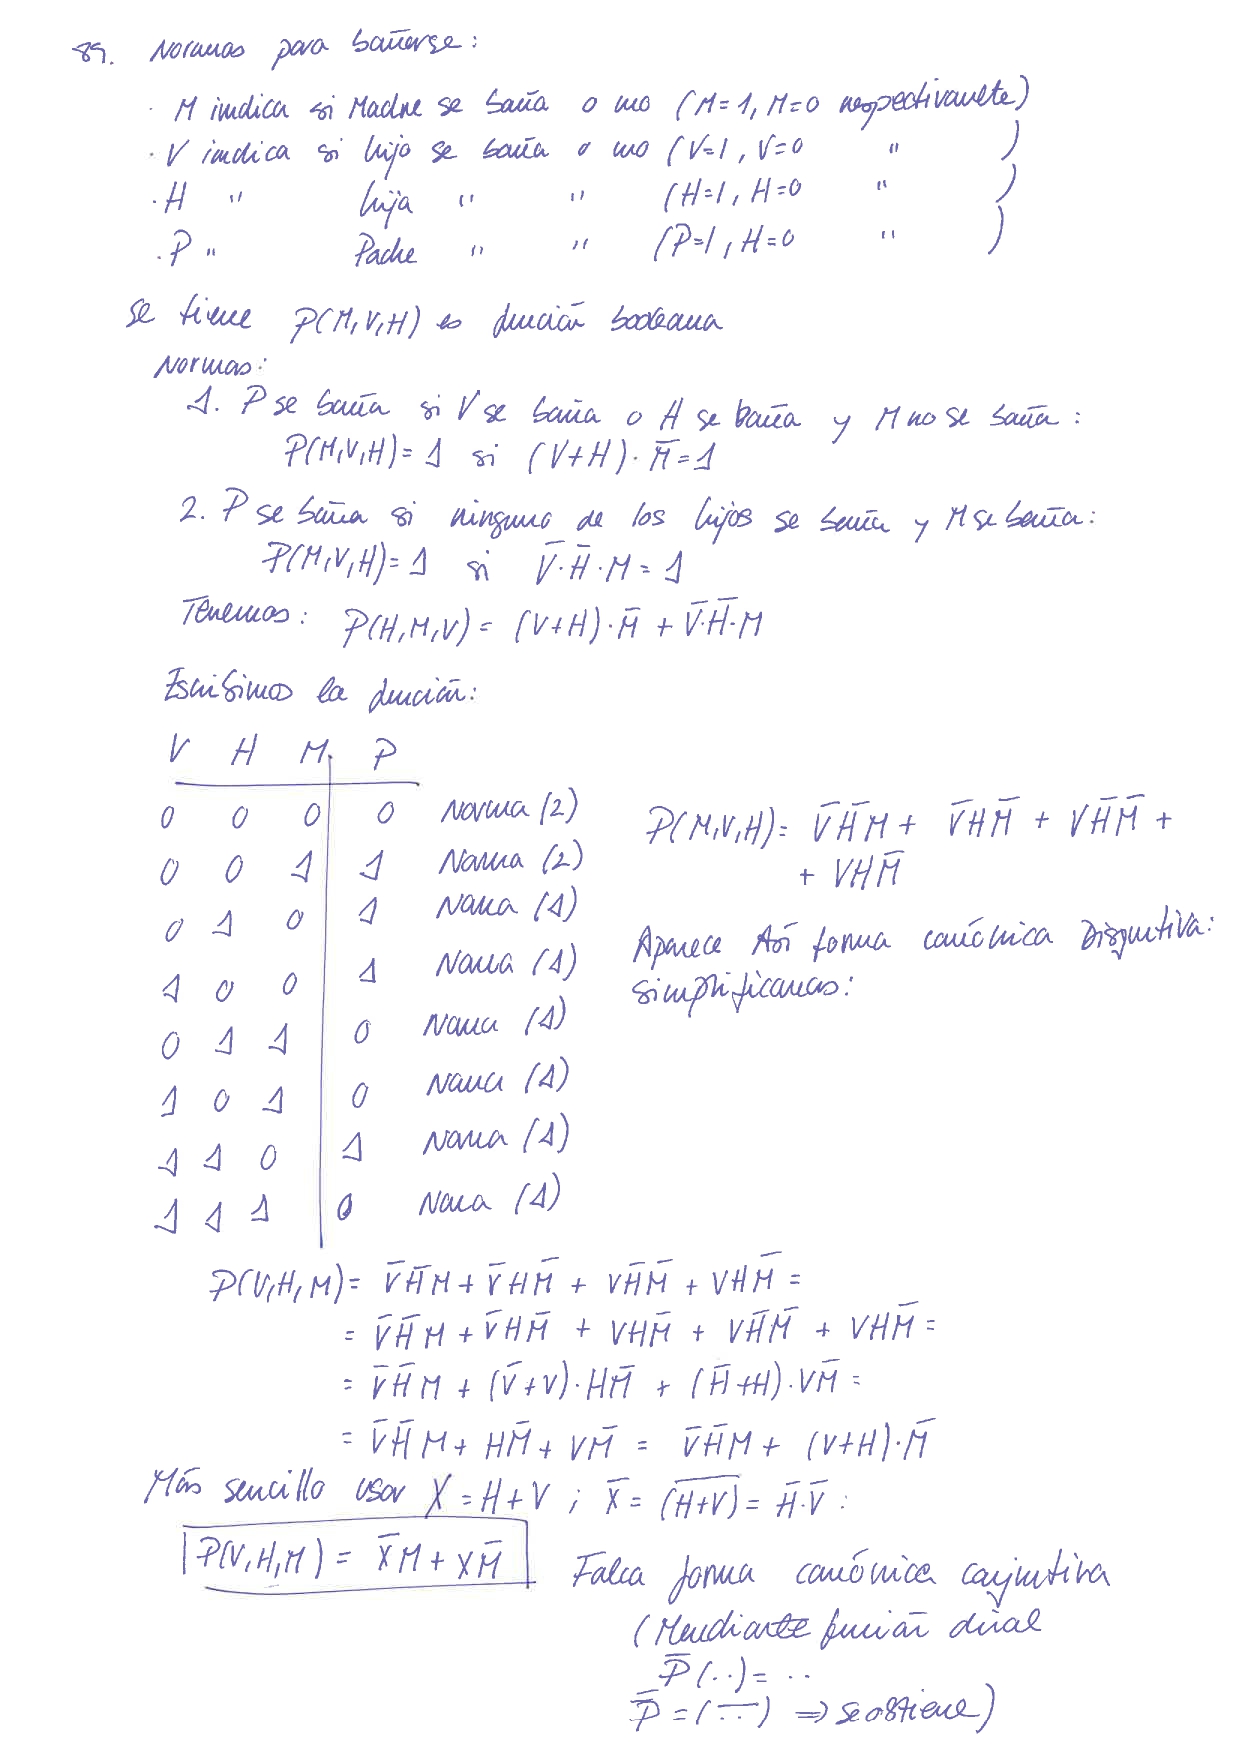 89. Normas para bañarse:
· M indica si Madre se baña o no (M=1, M=0 respectivamente)
· V indica si hijo se baña o no (V=1, V=0 " )
· H " hija " " (H=1, H=0 " )
· P " Padre " " (P=1, H=0 " )
Se tiene P(M,V,H) es función booleana
Normas:
1. P se baña si V se baña o H se baña y M no se baña:
P(M,V,H)=1 si (V+H)·M̄=1
2. P se baña si ninguno de los hijos se baña y M se baña:
P(M,V,H)=1 si V̄·H̄·M=1
Tenemos: P(H,M,V)= (V+H)·M̄ + V̄·H̄·M
Escribimos la función:
V H M P
0 0 0 0 Norma (2)
0 0 1 1 Norma (2)
0 1 0 1 Norma (1)
1 0 0 1 Norma (1)
0 1 1 0 Norma (1)
1 0 1 0 Norma (1)
1 1 0 1 Norma (1)
1 1 1 0 Norma (1)
P(M,V,H)= V̄H̄M + V̄HM̄ + VH̄M̄ +
+ VHM̄
Aparece Así forma canónica Disjuntiva:
simplificamos:
P(V,H,M)= V̄H̄M + V̄HM̄ + VH̄M̄ + VHM̄ =
= V̄H̄M + V̄HM̄ + VHM̄ + VH̄M̄ + VHM̄ =
= V̄H̄M + (V̄+V)·HM̄ + (H̄+H)·VM̄ =
= V̄H̄M + HM̄ + VM̄ = V̄H̄M + (V+H)·M̄
Más sencillo usar X=H+V ; X̄= (H+V)̅ = H̄·V̄ :
P(V,H,M) = X̄M + XM̄
Falta forma canónica conjuntiva
(Mendiante función dual
P̄(..)= ..
P̿=(..)̅ ⇒ se obtiene)